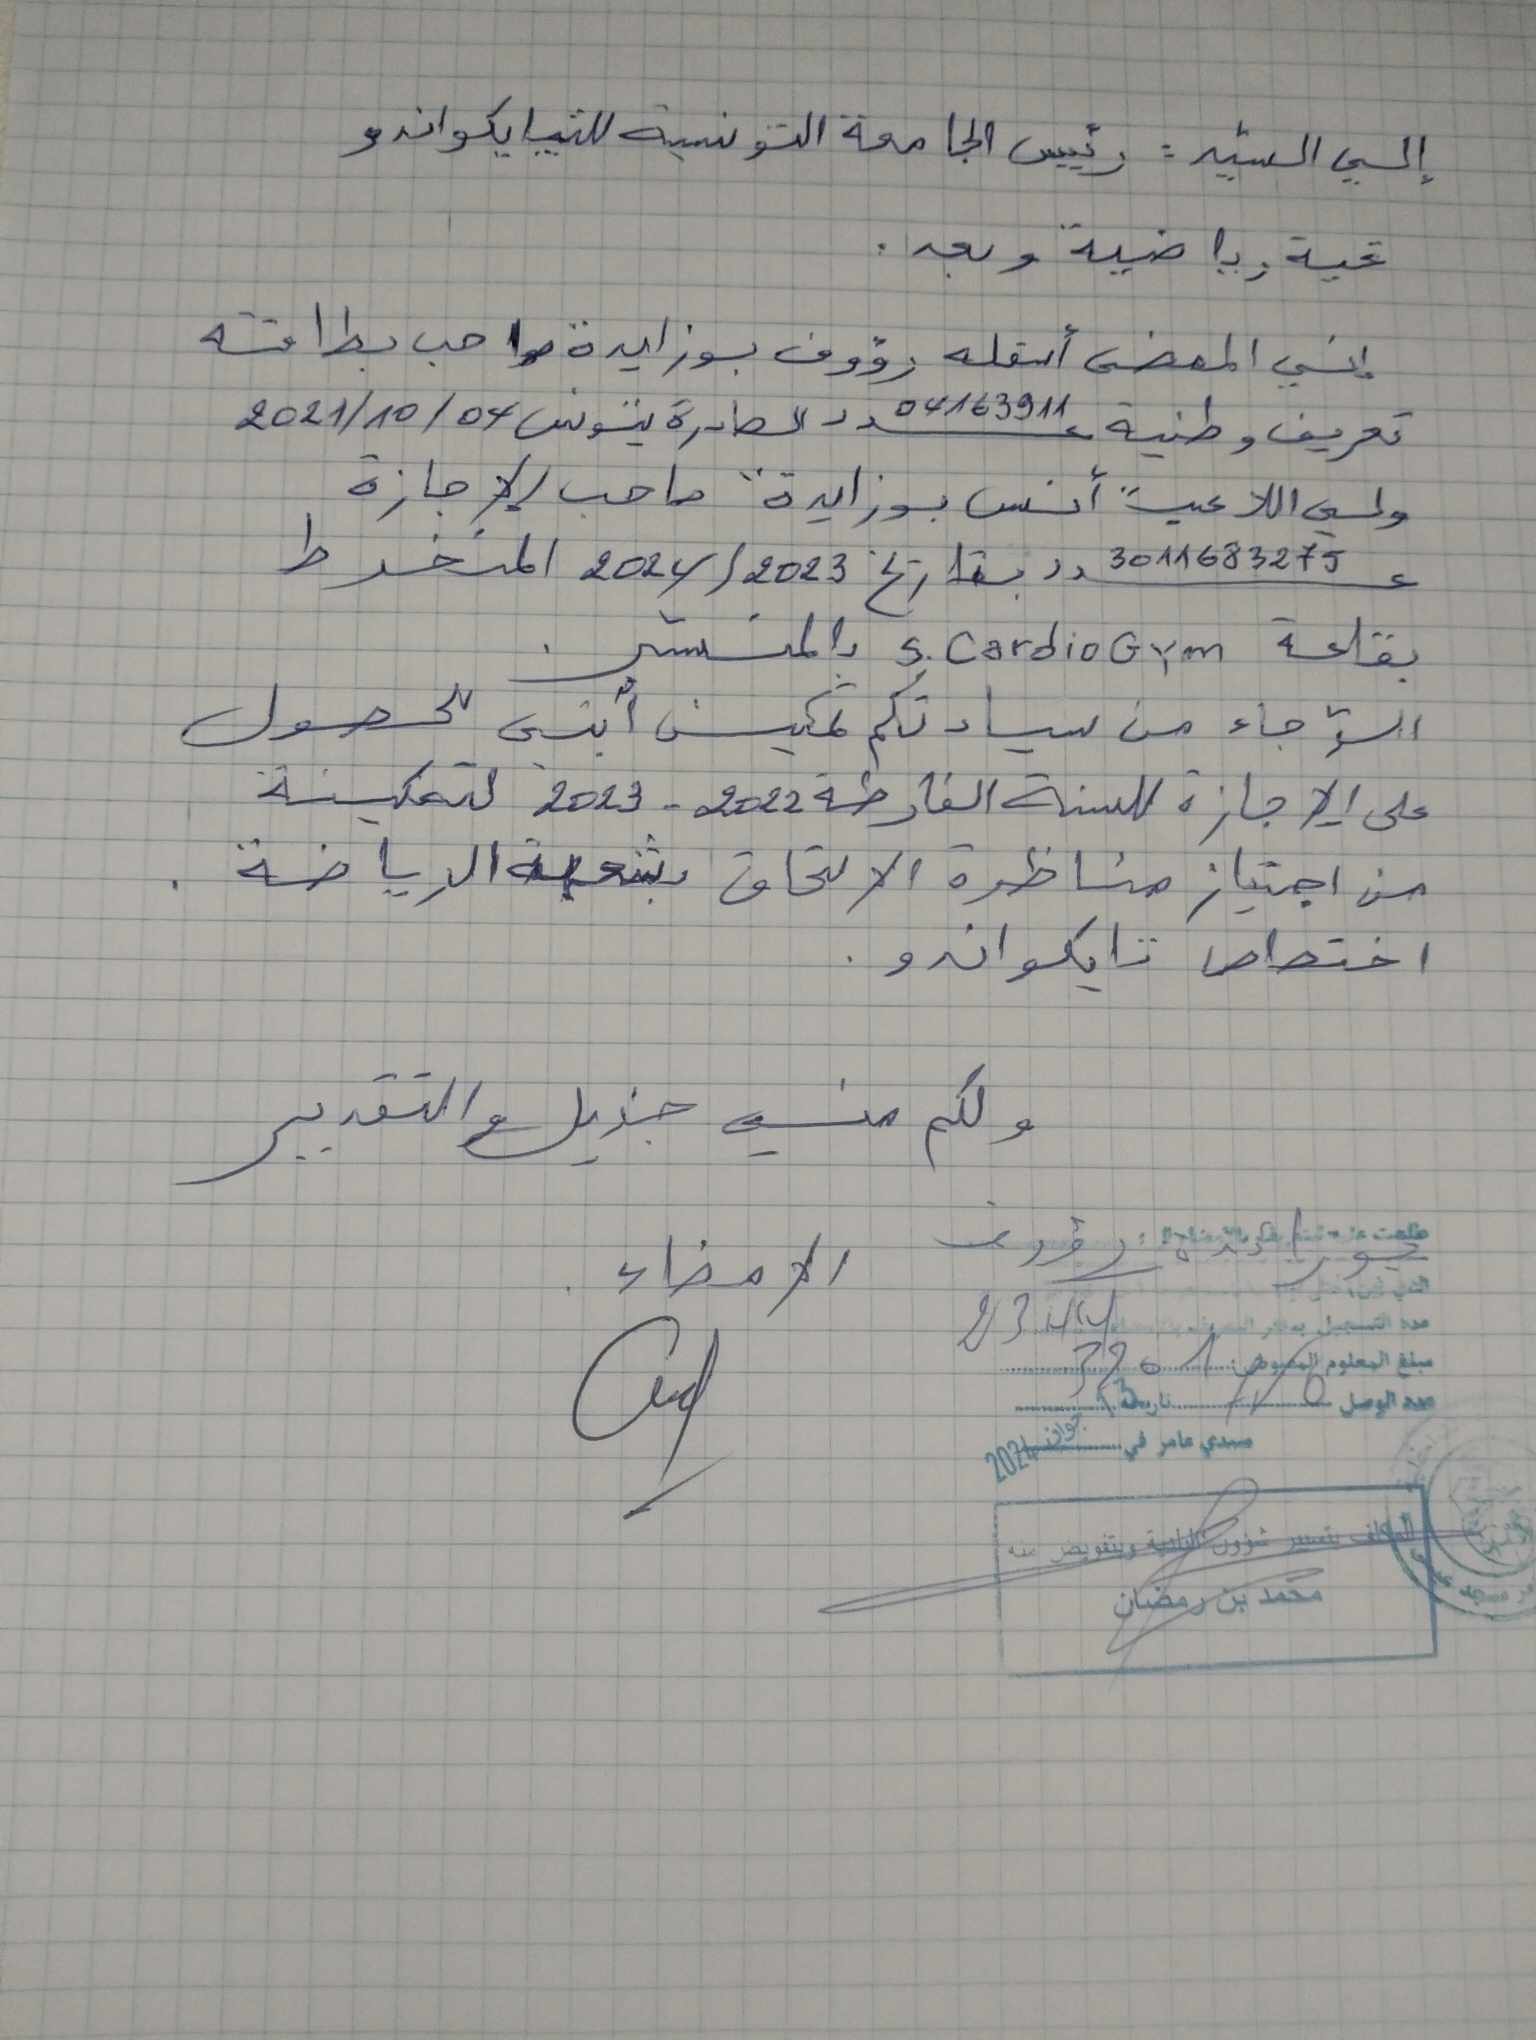 إلى السيد: رئيس الجامعة التونسية للتايكواندو
تحية رياضية وبعد.
إني الممضى أسفله رؤوف بوزايدة صاحب بطاقة
تعريف وطنية عـ04163911ـدد الصادرة بتونس 2021/10/04
ولي اللاعب "أنس بوزايدة" صاحب الإجازة
عـ3011683275ـدد بتاريخ 2024/2023 المنخرط
بقاعة S. Cardio Gym بالمنستير.
الرجاء من سيادتكم تمكين أبني للحصول
على الإجازة للسنة الفارطة 2022-2023 لتمكينه
من اجتياز مناظرة الالتحاق بشعبة الرياضة.
اختصاص تايكواندو.
ولكم مني جزيل والتقدير
الامضاء.
رؤوف
مبلغ المعلوم المقبوض
عدد الوصل
سيدي عامر في جوان 2024
المكلف بتسيير شؤون البلدية وبتفويض منه
محمد بن رمضان